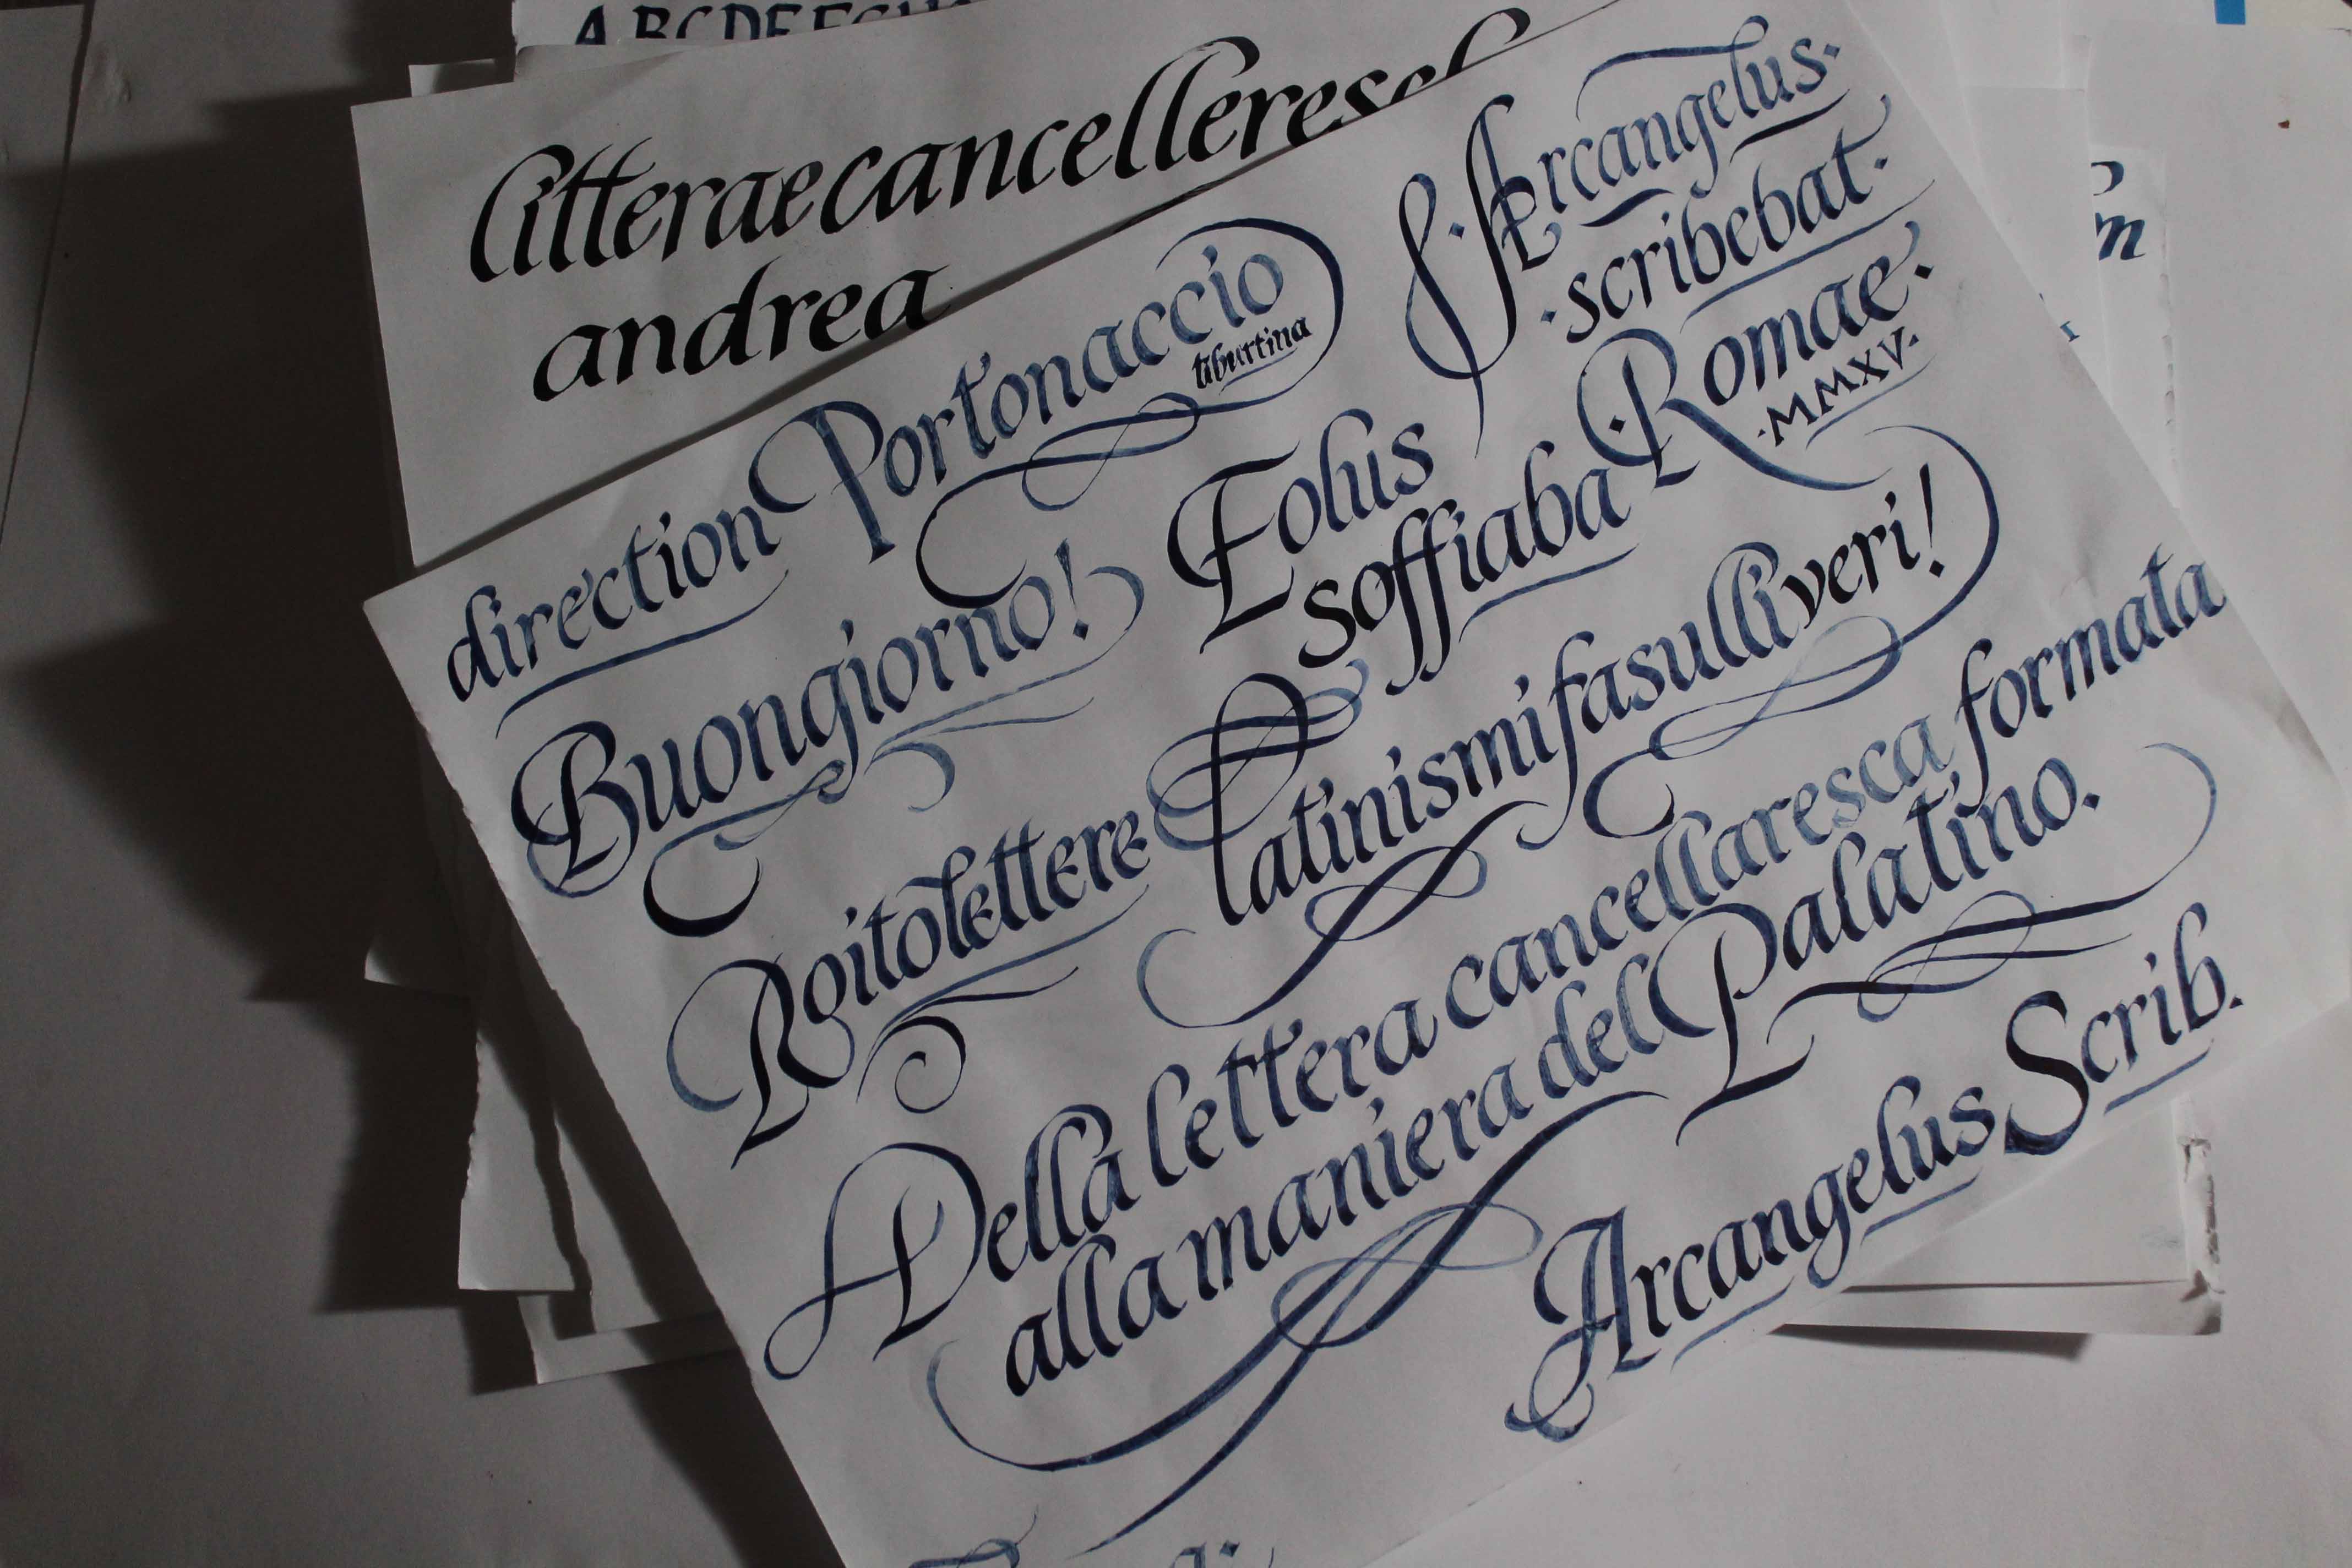 ABCDEFGH
litteraecancelleresc
andrea
direction Portonaccio
tiburtina
Arcangelus.
.scribebat.
.Romae.
.MMXV.
Buongiorno!
Eolus
soffiaba
Roitolettere
latinismifasulliveri!
Della lettera cancellaresca formata
alla maniera del Palatino.
Arcangelus Scrib.